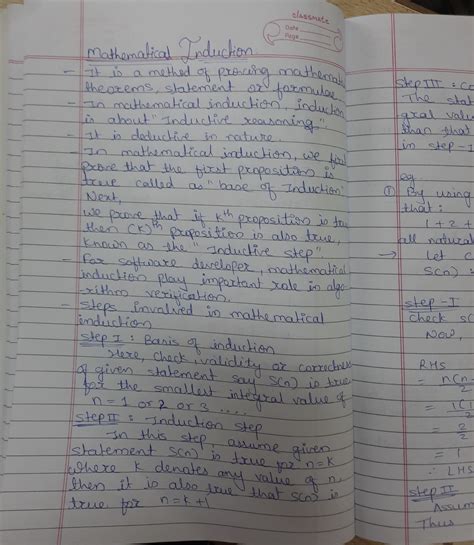 classmate
Date
Page
Mathematical Induction
- It is a method of proving mathema
theorems, statement or formulae
- In mathematical induction, induction
is about "Inductive reasoning".
- It is deductive in nature.
- In mathematical induction, we
prove that the first proposition is
true called as "base of Induction"
Next,
we prove that if kth proposition is true
then (k)th proposition is also true,
known as the "Inductive step"
- For software developer, mathematical
induction play important role in algo-
rithm verification.
- Steps involved in mathematical
induction
Step I : Basis of induction
Here, check validity or correctness
of given statement say S(n) is true
for the smallest integral value of
n = 1 or 2 or 3 ....
Step II : Induction step
In this step, assume given
statement S(n) is true for n=k
where k denotes any value of n,
then it is also true that S(n) is
true for n=k+1
Step III : Co
The stat
gral value
than that
in step-I
eg.
① By using
that:
1 + 2 +
all natural
→ Let
S(n)
Step-I
Check S(
Now,
RHS
= n(n
2
= 1(1
2
= 2
2
= 1
∴ LHS
Step II
Assum
Thus